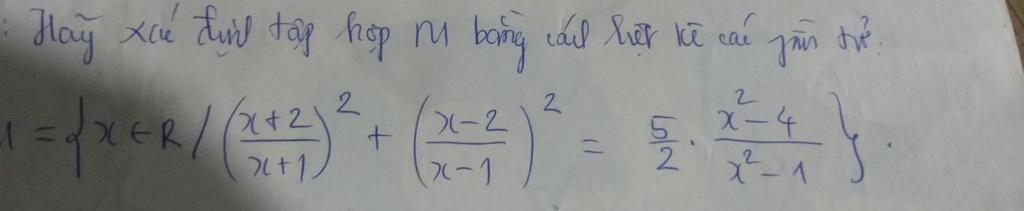 : Hãy xác định tập hợp M bằng cách liệt kê các phần tử:
= { x ∈ R / ( (x+2)/(x+1) )² + ( (x-2)/(x-1) )² = 5/2 · (x²-4)/(x²-1) } .